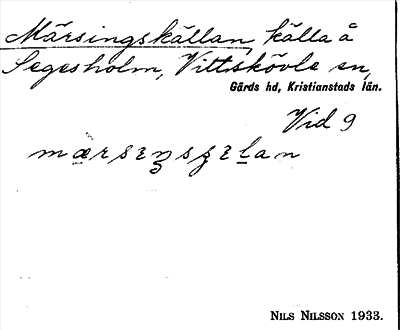 Märsingskällan, källa å
Segesholm, Vittskövle sn,
Gärds hd, Kristianstads län.
Vid 9
NILS NILSSON 1933.